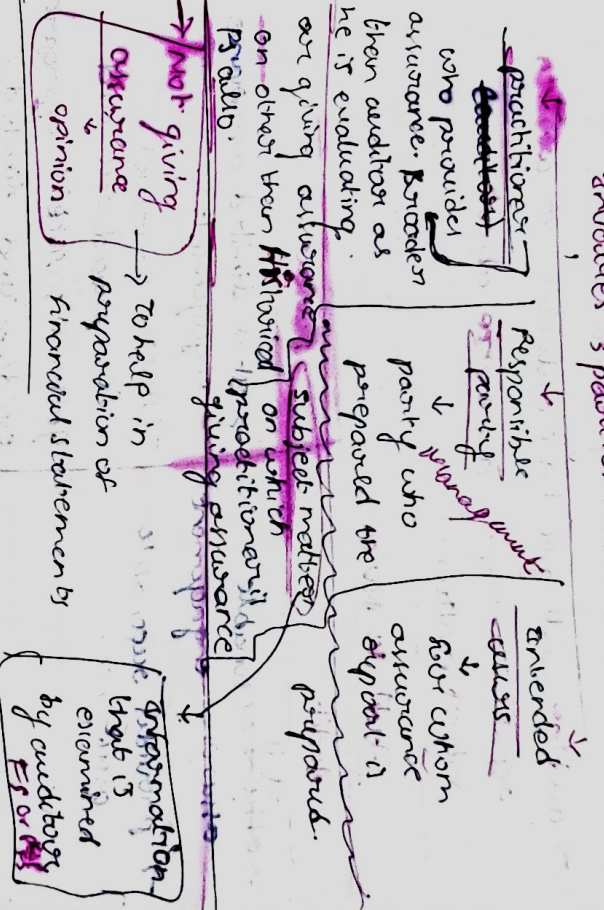 involves 3 parties
practitioner
who provides
assurance. Broader
than auditor as
he is evaluating.
or giving assurance
on other than Historical
FS also.
Responsible
party
management
party who
prepared the
subject matter
on which
practitioner is
giving assurance
Intended
users
for whom
assurance
report is
prepared.
Information
that is
examined
by auditor
FS or
Not giving
assurance
opinion
To help in
preparation of
financial statements